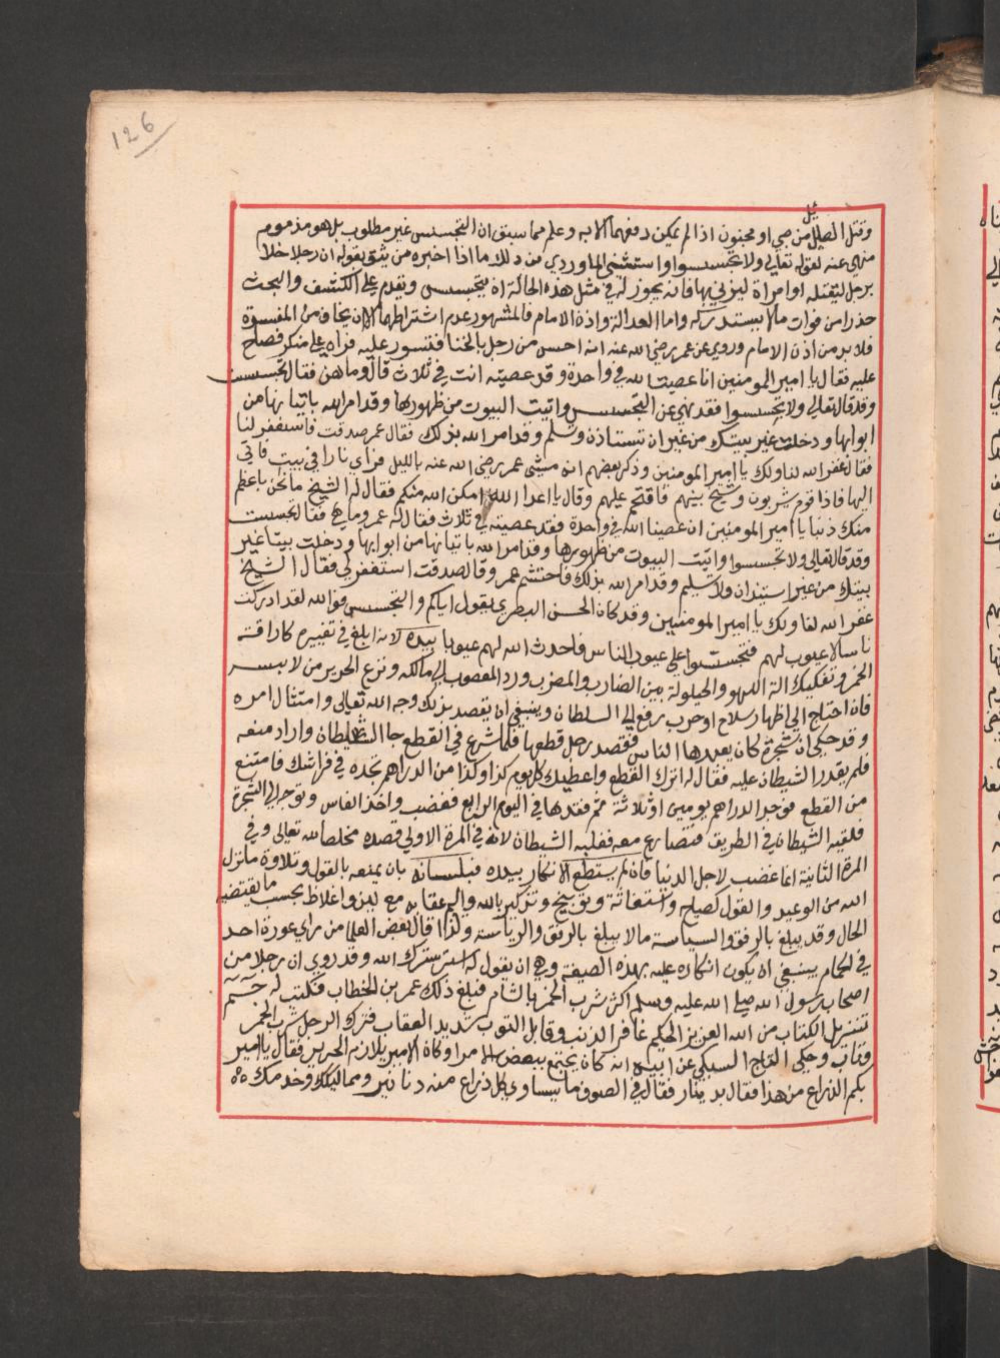 126
ئل
وقتل الصايل من صبي او مجنون اذا لم يمكن دفعهما الا به وعلم مما سبق ان التجسس غير مطلوب بل هو مذموم
منهي عنه لقوله تعالى ولا تجسسوا واستثنى الماوردي من ذلك ما اذا اخبره من يثق بقوله ان رجلا خلا
برجل ليقتله او امراة ليزني بها فانه يجوز له في مثل هذه الحالة ان يتجسس ويقدم على الكشف والبحث
حذرا من فوات ما لا يستدركه واما العدالة واذن الامام فالمشهور عدم اشتراطهما الا ان يخاف من المفسدة
فلا بد من اذن الامام وروي عن عمر رضي الله عنه انه احس من رجل بالخنا فتسور عليه فراه على منكر فصاح
عليه فقال يا امير المومنين انا عصيت الله في واحدة وقد عصيته انت في ثلاث قال وما هن فقال تجسست
وقد قال تعالى ولا تجسسوا فقد نهي عن التجسس واتيت البيوت من ظهورها وقد امر الله باتيانها من
ابوابها ودخلت غير بيتك من غير ان تستاذن وتسلم وقد امر الله بذلك فقال عمر صدقت فاستغفر لنا
فقال غفر الله لنا ولك يا امير المومنين وذكر بعضهم انه مشى عمر رضي الله عنه بالليل فراي نارا في بيت فاتى
اليها فاذا قوم يشربون وشيخ بينهم فاقتحم عليهم وقال يا اعدا الله امكن الله منكم فقال له الشيخ ما نحن باعظم
منك ذنبا يا امير المومنين ان عصينا الله في واحدة فقد عصيته في ثلاث فقال له عمر وما هي فقال تجسست
وقد قال تعالى ولا تجسسوا واتيت البيوت من ظهورها وقد امر الله باتيانها من ابوابها ودخلت بيتا غير
بيتك من غير استيذان ولا تسليم وقد امر الله بذلك فاحتشم عمر وقال صدقت استغفر لي فقال الشيخ
غفر الله لنا ولك يا امير المومنين وقد كان الحسن البصري يقول اياكم والتجسس فوالله لقد ادركت
ناسا لا عيوب لهم فتجسسوا على عيوب الناس فاحدث الله لهم عيوبا بيده لانه ابلغ في تغييره كاراقته
الخمر وتفكيك الة اللهو والحيلولة بين الضارب والمضرب ورد المغصوب الى مالكه ونزع الحرير من لابسه
فان احتاج الى اظهار سلاح او حرب رفع الى السلطان وينبغي ان يقصد بذلك وجه الله تعالى وامتثال امره
وقد حكي ان شجرة كان يعبدها الناس فقصد رجل قطعها فلما شرع في القطع جا الشيطان واراد منعه
فلم يقدر الشيطان عليه فقال له اترك القطع واعطيك كل يوم كذا وكذا من الدراهم تجده في فراشك فامتنع
من القطع فوجد الدراهم يومين او ثلاثة ثم فقدها في اليوم الرابع فغضب واخذ الفاس وتوجه الى الشجرة
فلقيه الشيطان في الطريق فتصارع معه فغلبه الشيطان لانه في المرة الاولى قصده مخلصا لله تعالى وفي
المرة الثانية انما غضب لاجل الدنيا فان لم يستطع الانكار بيده فبلسانه بان يمنعه بالقول وتلاوة ما نزل
الله من الوعيد والقول كصياح واستغاثة وتوبيخ وتذكير بالله واليم عقابه مع لين واغلاظ بحسب ما يقتضيه
الحال وقد يبلغ بالرفق والسياسة ما لا يبلغ بالرفق والرياسة ولذا قال بعض العلما من راي عورة احد
في الحمام ينبغي ان يكون انكاره عليه بهذه الصيغة وهي ان يقول له استر سترك الله وقد روي ان رجلا من
اصحاب رسول الله صلى الله عليه وسلم اكثر شرب الخمر بالشام فبلغ ذلك عمر بن الخطاب فكتب له حم
تنزيل الكتاب من الله العزيز الحكيم غافر الذنب وقابل التوب شديد العقاب فترك الرجل شرب الخمر
وتاب وحكى التاج السبكي عن ابيه انه كان يجتمع ببعض الامرا وكان الامير يلازم الحرير فقال يا امير
بكم الذراع من هذا فقال بدينار فقال في الصوف ما يساوي كل ذراع منه دنانير ومماليكك وخدمك